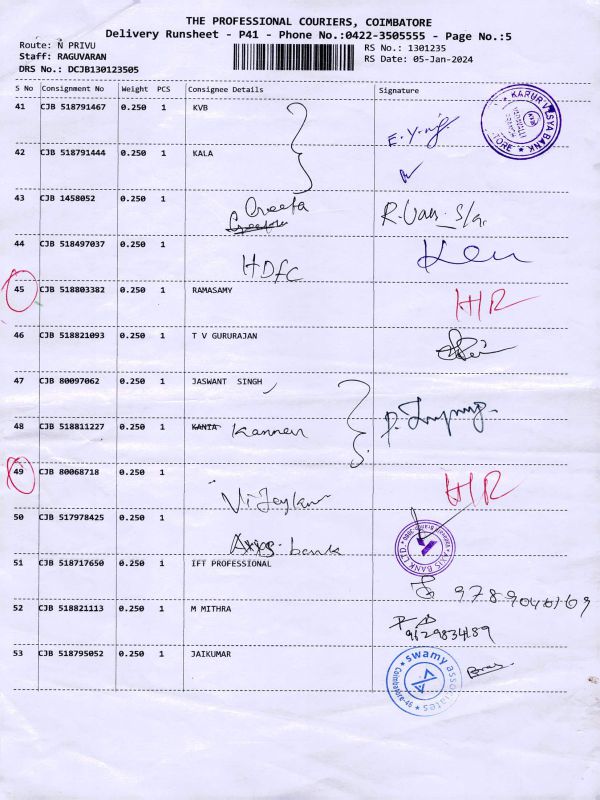 THE PROFESSIONAL COURIERS, COIMBATORE
Delivery Runsheet - P41 - Phone No.:0422-3505555 - Page No.:5
Route: N PRIVU
RS No.: 1301235
Staff: RAGUVARAN
RS Date: 05-Jan-2024
DRS No.: DCJB130123505
S No Consignment No Weight PCS Consignee Details Signature
41 CJB 518791467 0.250 1 KVB
KARUR VYSYA BANK
42 CJB 518791444 0.250 1 KALA
43 CJB 1458052 0.250 1 Geeta
44 CJB 518497037 0.250 1 HDFC
45 CJB 518803382 0.250 1 RAMASAMY HR
46 CJB 518821093 0.250 1 T V GURURAJAN
47 CJB 80097062 0.250 1 JASWANT SINGH
48 CJB 518811227 0.250 1 KANIA Kannen
49 CJB 80068718 0.250 1 HR
50 CJB 517978425 0.250 1 bank
AXIS BANK LTD.
51 CJB 518717650 0.250 1 IFT PROFESSIONAL
52 CJB 518821113 0.250 1 M MITHRA
9629834189
53 CJB 518795052 0.250 1 JAIKUMAR
swamy associates
Coimbatore-46